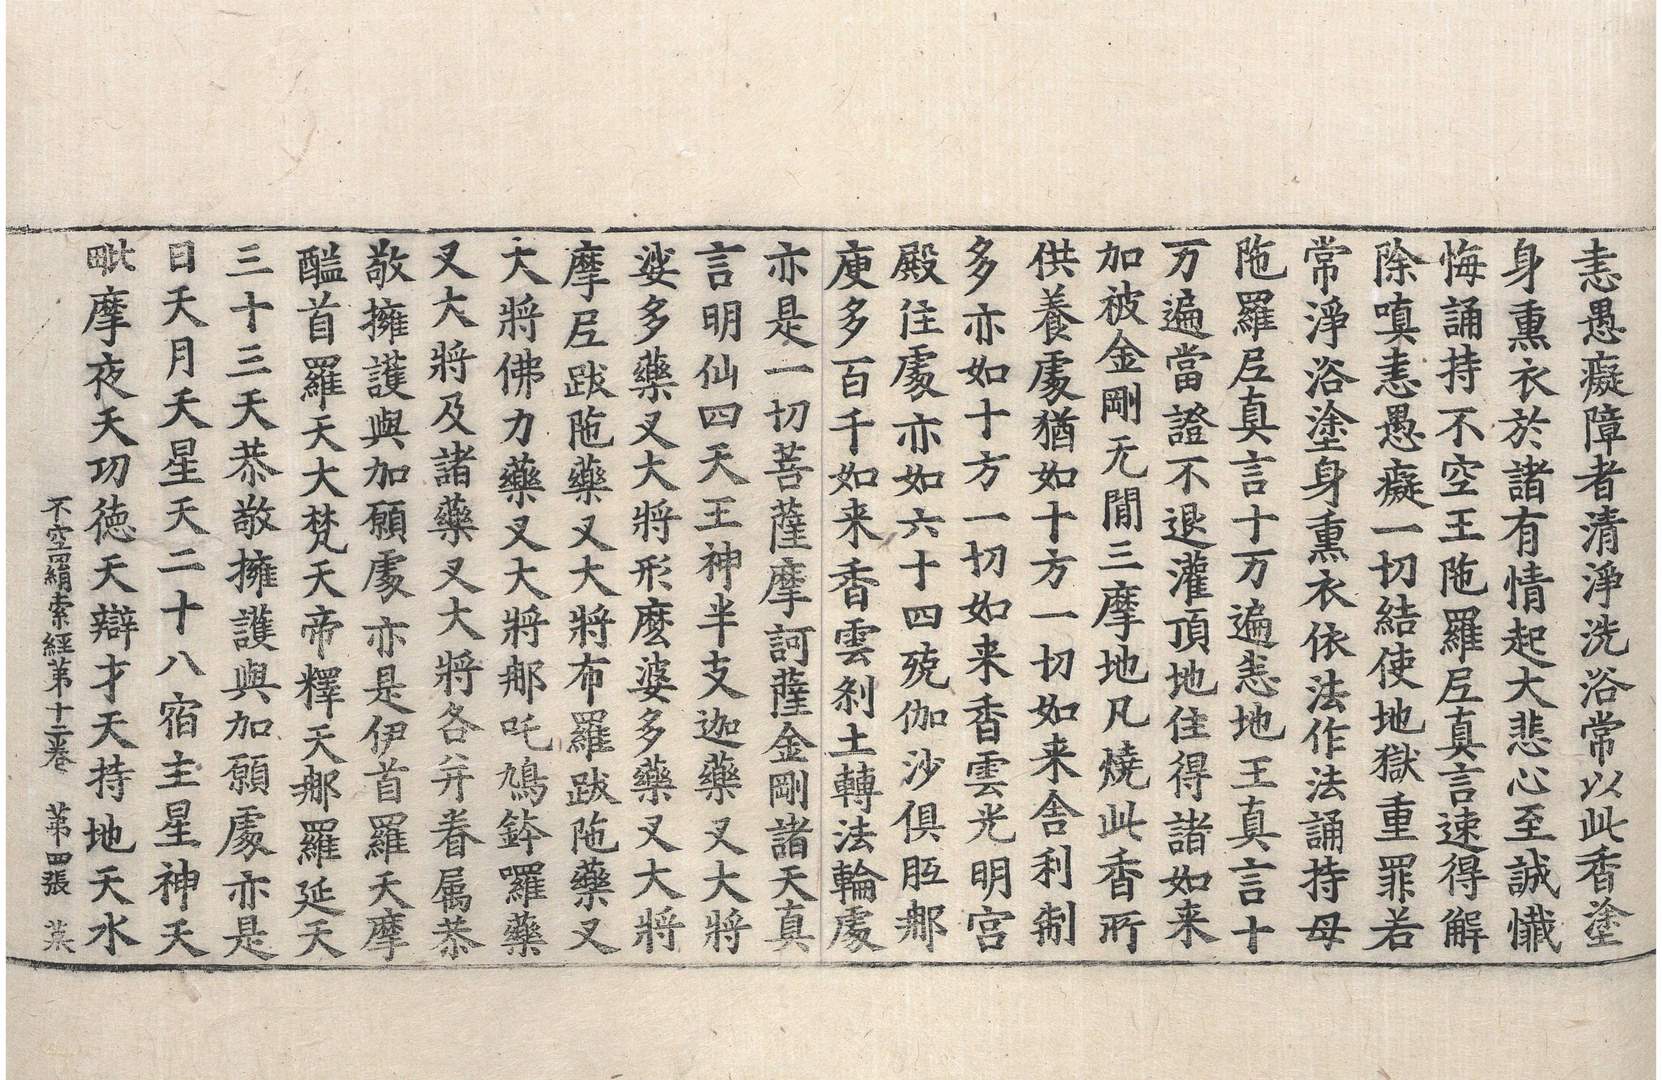 恚愚癡障者清淨洗浴常以此香塗
身熏衣於諸有情起大悲心至誠懺
悔誦持不空王陁羅尼真言速得解
除嗔恚愚癡一切結使地獄重罪若
常淨浴塗身熏衣依法作法誦持母
陁羅尼真言十万遍恚地王真言十
万遍當證不退灌頂地住得諸如来
加被金剛无閒三摩地凡燒此香所
供養處猶如十方一切如来舍利制
多亦如十方一切如来香雲光明宮
殿住處亦如六十四殑伽沙俱胝那
庾多百千如来香雲剎土轉法輪處
亦是一切菩薩摩訶薩金剛諸天真
言明仙四天王神半支迦藥叉大將
娑多藥叉大將形麽婆多藥叉大將
摩尼跋陁藥叉大將布羅跋陁藥叉
大將佛力藥叉大將那吒鳩鉢囉藥
叉大將及諸藥叉大將各并眷属恭
敬擁護與加願處亦是伊首羅天摩
醯首羅天大梵天帝釋天那羅延天
三十三天恭敬擁護與加願處亦是
日天月天星天二十八宿主星神天
毗摩夜天功徳天辯才天持地天水
不空羂索經第十二卷　第四張　葉